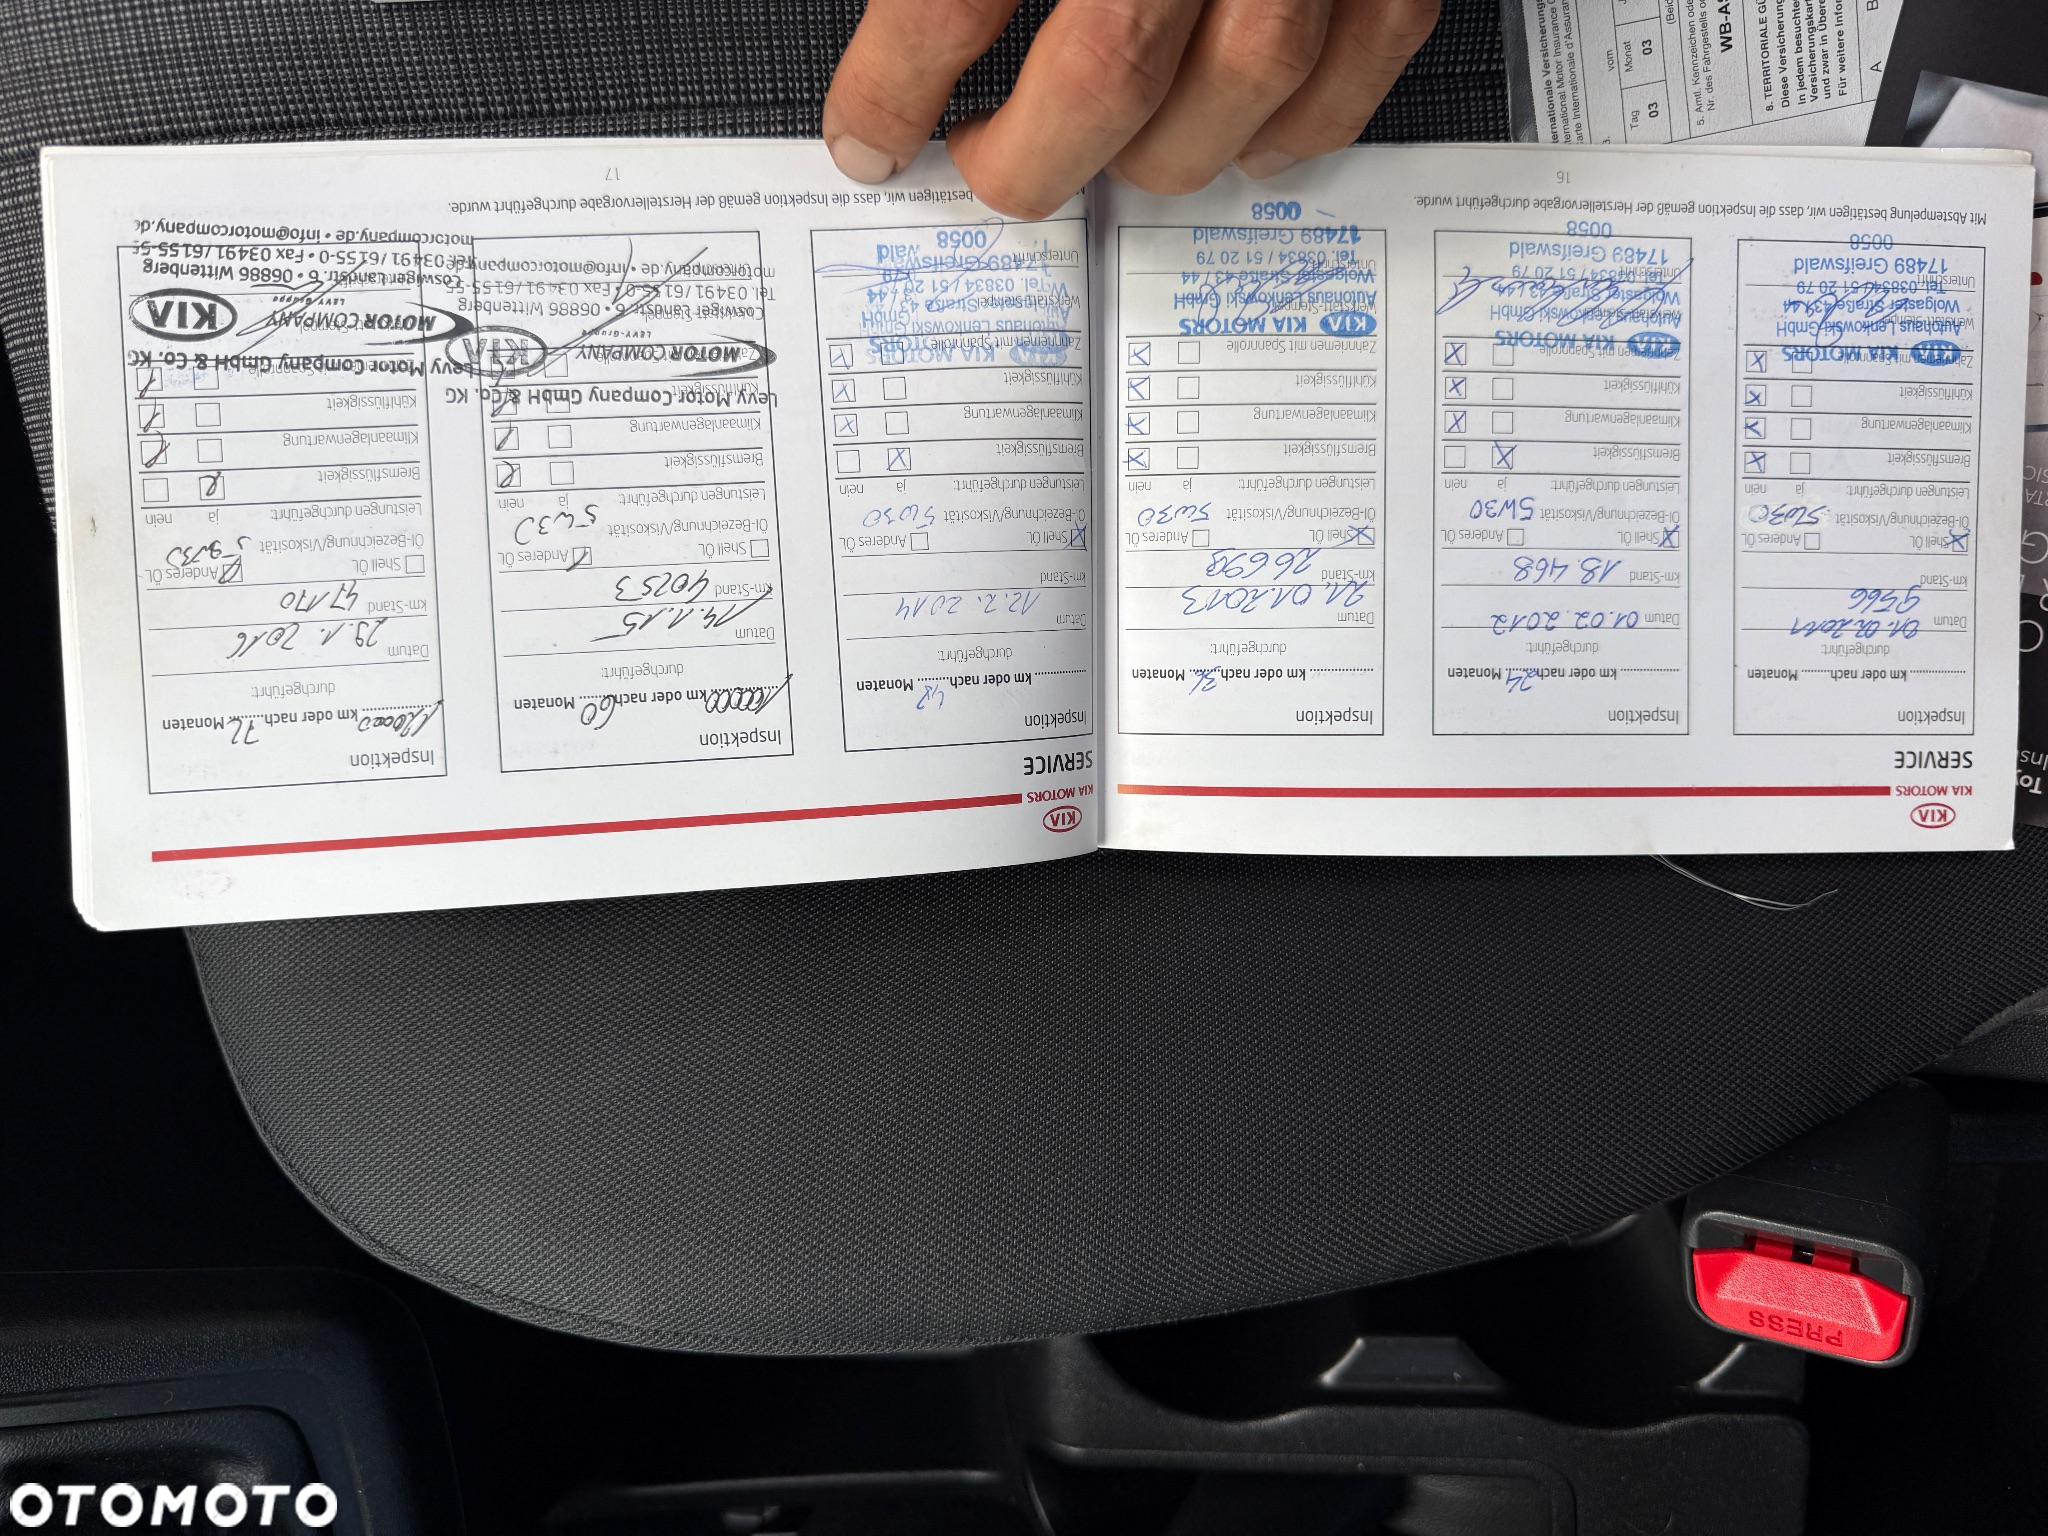 KIA
KIA MOTORS
SERVICE
Inspektion
km oder nach Monaten
durchgeführt:
Datum 01.02.2011
km-Stand 9566
Shell ÖL Anderes ÖL
Öl-Bezeichnung/Viskosität 5W30
Leistungen durchgeführt: ja nein
Bremsflüssigkeit
Klimaanlagenwartung
Kühlflüssigkeit
Zahnriemen mit Spannrolle
KIA MOTORS
Autohaus Lenkowski GmbH
Wolgaster Straße 43 / 44
Tel. 03834 / 51 20 79
17489 Greifswald
0058
Inspektion
km oder nach 24 Monaten
durchgeführt:
Datum 01.02.2012
km-Stand 18.468
Shell ÖL Anderes ÖL
Öl-Bezeichnung/Viskosität 5W30
Leistungen durchgeführt: ja nein
Bremsflüssigkeit
Klimaanlagenwartung
Kühlflüssigkeit
Zahnriemen mit Spannrolle
KIA MOTORS
Autohaus Lenkowski GmbH
Wolgaster Straße 43 / 44
Tel. 03834 / 51 20 79
17489 Greifswald
0058
Inspektion
km oder nach 36 Monaten
durchgeführt:
Datum 21.01.2013
km-Stand 26693
Shell ÖL Anderes ÖL
Öl-Bezeichnung/Viskosität 5W30
Leistungen durchgeführt: ja nein
Bremsflüssigkeit
Klimaanlagenwartung
Kühlflüssigkeit
Zahnriemen mit Spannrolle
KIA MOTORS
Autohaus Lenkowski GmbH
Wolgaster Straße 43 / 44
Tel. 03834 / 51 20 79
17489 Greifswald
0058
Mit Abstempelung bestätigen wir, dass die Inspektion gemäß der Herstellervorgabe durchgeführt wurde.
16
KIA
KIA MOTORS
SERVICE
Inspektion
km oder nach 48 Monaten
durchgeführt:
Datum 12.2.2014
km-Stand
Shell ÖL Anderes ÖL
Öl-Bezeichnung/Viskosität 5W30
Leistungen durchgeführt: ja nein
Bremsflüssigkeit
Klimaanlagenwartung
Kühlflüssigkeit
Zahnriemen mit Spannrolle
KIA MOTORS
Autohaus Lenkowski GmbH
0058
Inspektion
100000 km oder nach 60 Monaten
durchgeführt:
Datum 14.1.15
km-Stand 40253
Shell ÖL Anderes ÖL
Öl-Bezeichnung/Viskosität 5W30
Leistungen durchgeführt: ja nein
Bremsflüssigkeit
Klimaanlagenwartung
Kühlflüssigkeit
Levy Motor Company GmbH & Co. KG
MOTOR COMPANY KIA
LEVY-Gruppe
Coswiger Landstr. 6 • 06886 Wittenberg
Tel. 03491/6155-0 • Fax 03491/6155-55
motorcompany.de • info@motorcompany.de
Inspektion
120000 km oder nach 72 Monaten
durchgeführt:
Datum 29.1.2016
km-Stand 47170
Shell ÖL Anderes ÖL
Öl-Bezeichnung/Viskosität 5W30
Leistungen durchgeführt: ja nein
Bremsflüssigkeit
Klimaanlagenwartung
Kühlflüssigkeit
Levy Motor Company GmbH & Co. KG
MOTOR COMPANY KIA
LEVY-Gruppe
Coswiger Landstr. 6 • 06886 Wittenberg
Tel. 03491/6155-0 • Fax 03491/6155-55
motorcompany.de • info@motorcompany.de
bestätigen wir, dass die Inspektion gemäß der Herstellervorgabe durchgeführt wurde.
17
vom
Tag Monat
03 03
8. TERRITORIALE
Diese Versicherung
PRESS
OTOMOTO